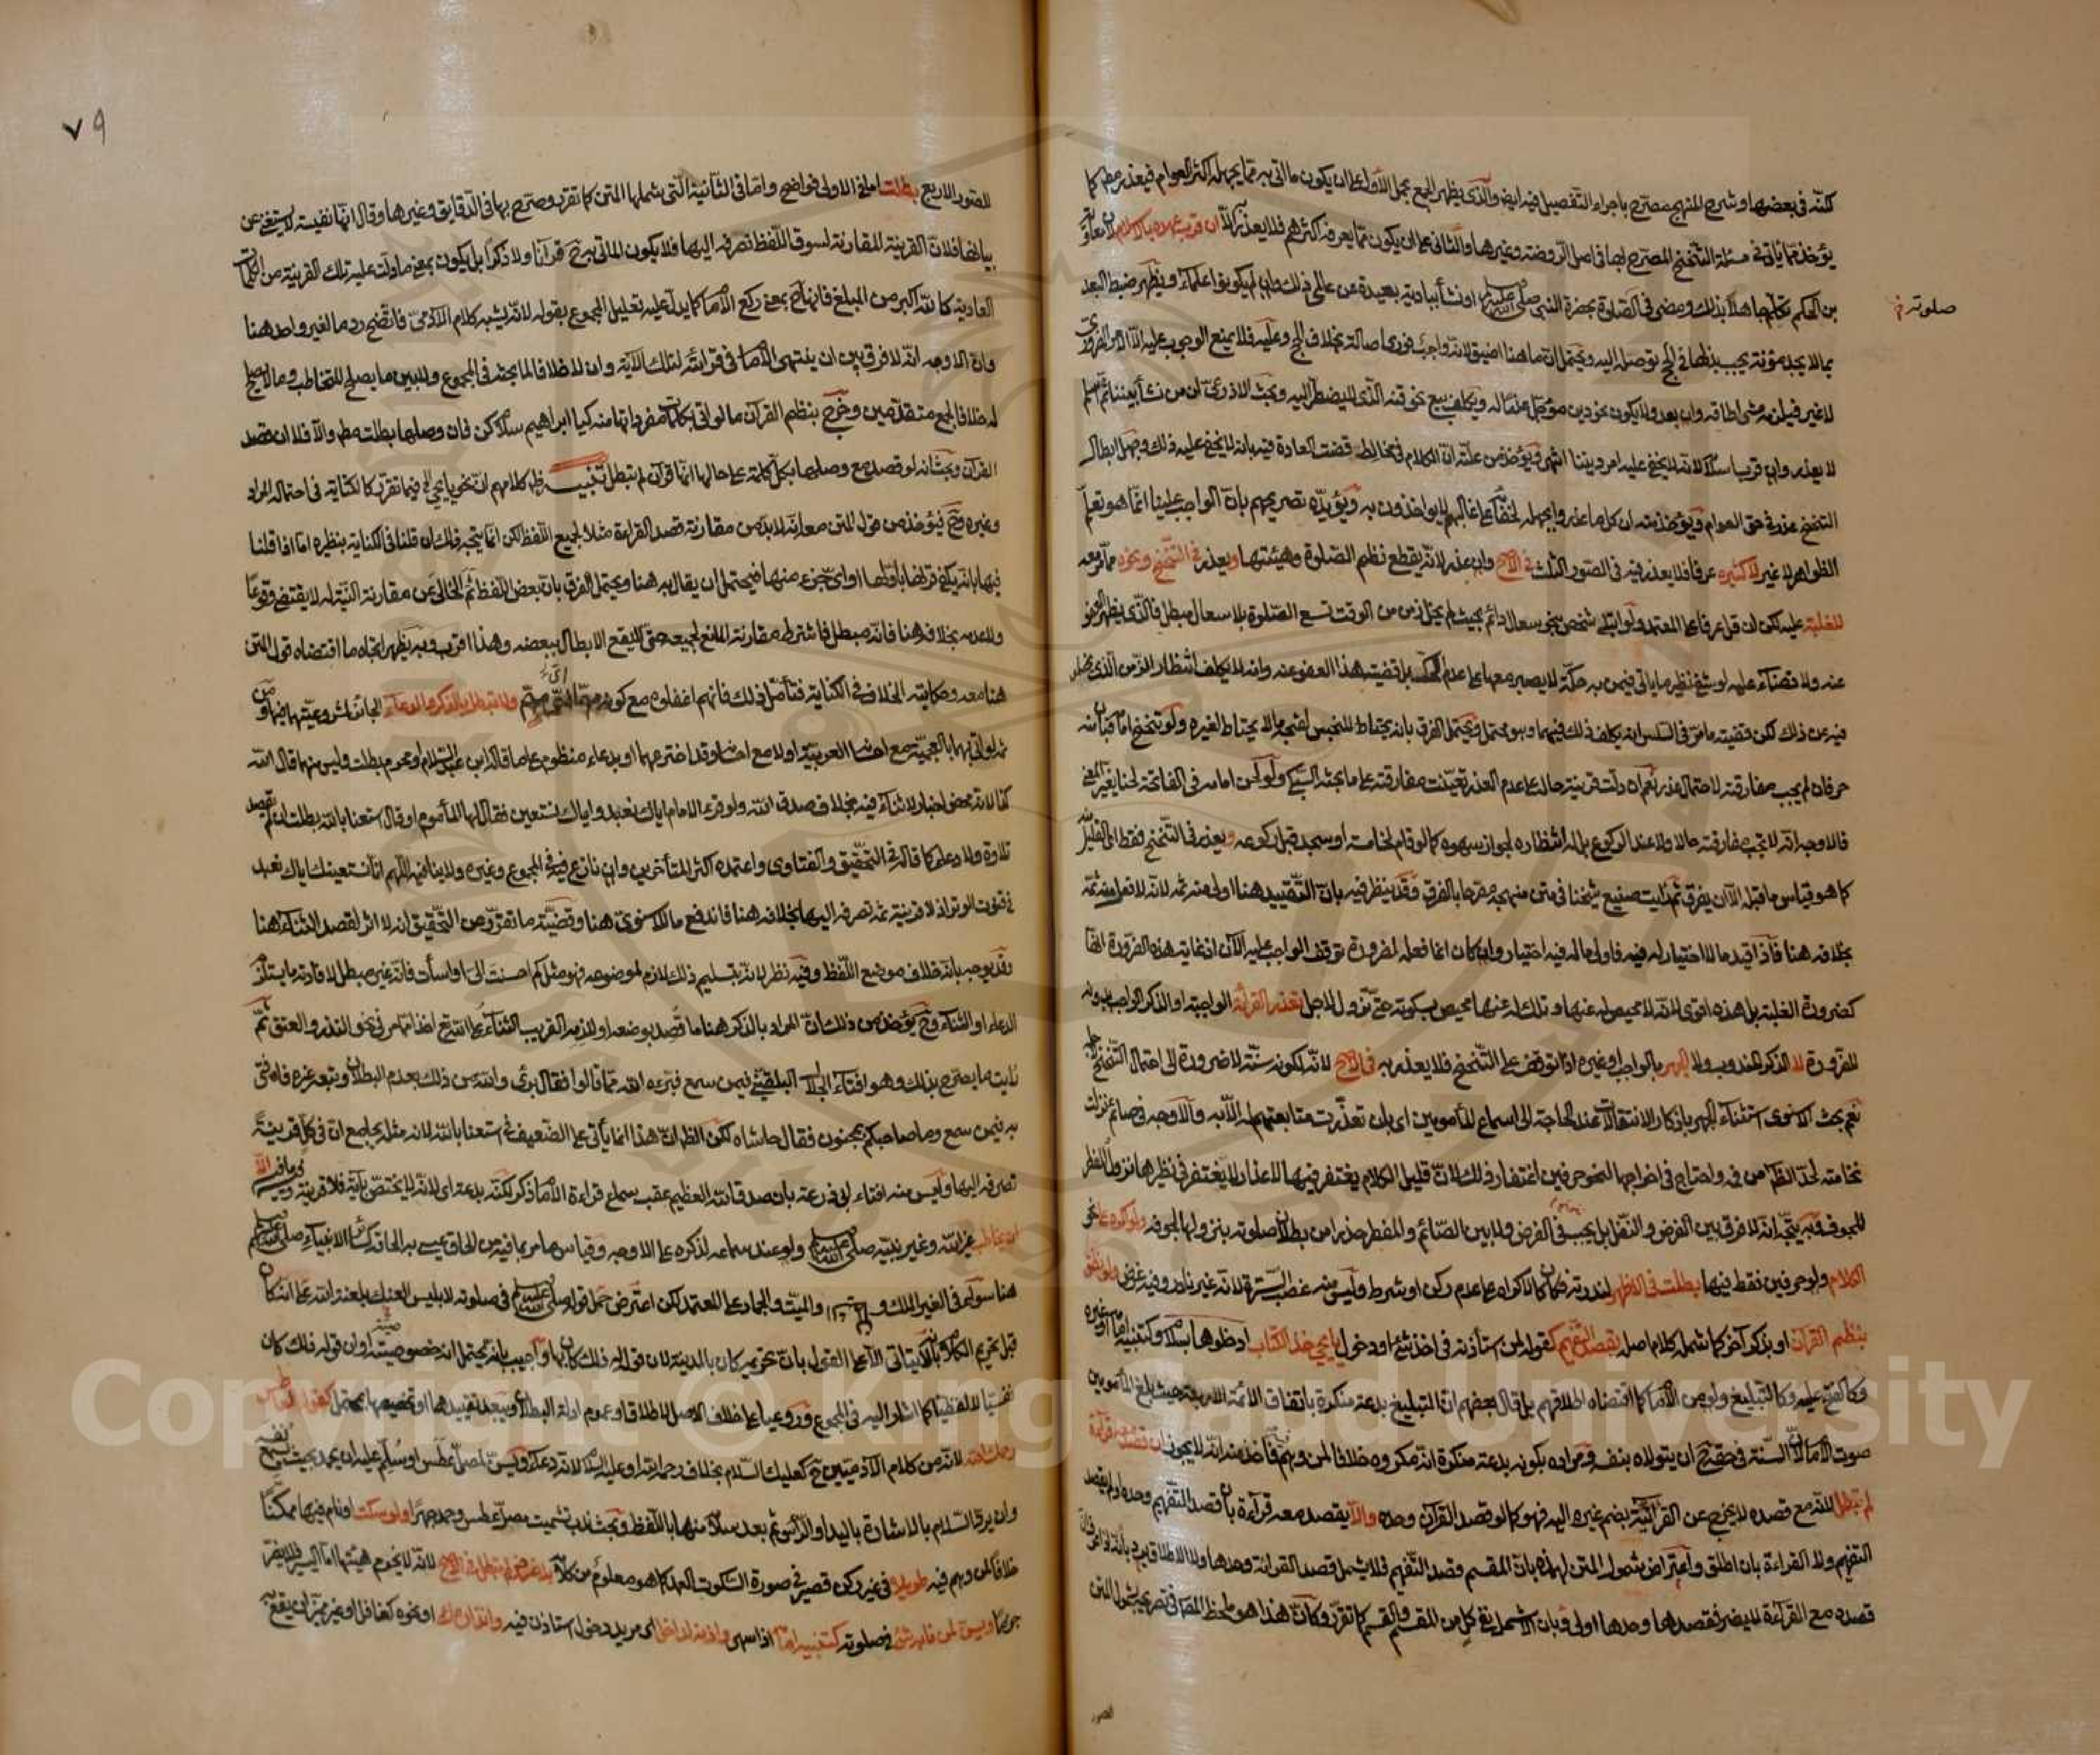 لكنه في بعضها وشرح المنهج مصرح باجراء التفصيل فيه ايضا والذي يظهر الجمع بحمل الأول على ان يكون ما اتى به مما يجهله اكثر العوام فيعذر مطلقا كما
يؤخذ مما يأتي في مسئلة التنحنح المصرح بها في اصل الروضة وغيرها والثاني على ان يكون مما يعرفه اكثرهم فلا يعذر الا ان قرب عهده بالاسلام لان معاوية
بن الحكم تكلم جاهلا بذلك ومضى في الصلوة بحضرة النبي صلى الله عليه وسلم او نشأ ببادية بعيدة عن عالمي ذلك وان لم يكونوا علماء ويظهر ضبط البعد
صلوته
بما لا يجد مؤنة يجب بذلها في الحج توصله اليه ويحتمل ان ما هنا اضيق لانه واجب فوري اصالة بخلاف الحج وعليه فلا يمنع الوجوب عليه الا الامر الضروري
لا غير فيلزمه مشي اطاقه وان بعد ولا يكون نحو دين مؤجل عذرا له ويكلف بيع نحو قنه الذي لا يضطر اليه وبحث الاذرعي ان من نشأ بيننا ثم اسلم
لا يعذر وان قرب اسلامه لانه لا يخفى عليه امر ديننا انتهى ويؤخذ من علته ان الكلام في مخالط قضت العادة فيه بانه لا يخفى عليه ذلك وجهل ابطال
التنحنح عذر في حق العوام ويؤخذ منه ان كل ما عذروا بجهله لخفائه على غالبهم لا يؤاخذون به ويؤيده تصريحهم بان الواجب علينا انما هو تعلم
الظواهر لا غير لا كثيره عرفا فلا يعذر فيه في الصور الثلث في الاصح وان عذر لانه يقطع نظم الصلوة وهيئتها ويعذر في التنحنح ونحوه مما مر معه
للغلبة عليه لكن ان قل عرفا على المعتمد ولو ابتلي شخص بنحو سعال دائم بحيث لم يخل زمن من الوقت تسع الصلوة بلا سعال مبطل فالذي يظهر العفو
عنه ولا قضاء عليه لو شفي نظير ما يأتي فيمن به حكة لا يصبر معها على عدم الحك بل قضية هذا العفو عنه وانه لا يكلف انتظار الزمن الذي يخلو
فيه عن ذلك لكن قضية ما مر في السلس انه يكلف ذلك فيهما وهو محتمل ويحتمل الفرق بانه يحتاط للنجس لقبحه ما لا يحتاط لغيره ولو تنحنح امامه فبان منه
حرفان لم يجب مفارقته لاحتمال عذره نعم ان دلت قرينة حاله على عدم العذر تعينت مفارقته على ما بحثه السبكي ولو لحن امامه في الفاتحة لحنا يغير المعنى
فالاوجه انه لا تجب مفارقته حالا ولا عند الركوع بل له انتظاره لجواز سهوه كما لو قام لخامسة او سجد قبل ركوعه ويعذر في التنحنح فقط اي القليل منه
كما هو قياس ما قبله الا ان يفرق ثم رأيت صنيع شيخنا في متن منهجه مصرحا بالفرق وقد ينظر فيه بان التقييد هنا اولى منه ثمه لانه لا فعل منه ثمه
بخلافه هنا فاذا قيد ما لا اختيار له فيه فاولى ما له فيه اختيار وان كان انما فعله لضرورة توقف الواجب عليه الا ان اذ غاية هذه الضرورة انها
كضرورة الغلبة بل هذه اقوى لانه لا محيص له عنها وتلك له عنها محيص بسكوته حتى تزول لاجل تعذر القراءة الواجبة او الذكر الواجب بدونه
للضرورة لا الذكر المندوب ولا الجهر بالواجب او غيره اذا توقف على التنحنح فلا يعذر به في الاصح لانه لكونه سنة لا ضرورة الى احتمال التنحنح لاجله
نعم بحث الاسنوي استثناء الجهر باذكار الانتقالات عند الحاجة الى اسماع المأمومين اي بان تعذرت متابعتهم له الا به والاوجه في صائم نزلت
نخامته لحد الظاهر من فيه واحتاج في اخراجها لنحو حرفين اغتفار ذلك لان قليل الكلام يغتفر فيها لاعذار لا يغتفر في نظيرها نزول المفطر
للجوف وبه يتجه انه لا فرق بين الفرض والنفل بل يجب في الفرض ولا بين الصائم والمفطر حذرا من بطلان صلوته بنزولها لجوفه ولو اكره على نحو
الكلام ولو حرفين فقط فيها بطلت في الاظهر لندرته فكان كالاكراه على عدم ركن او شرط وليس منه غصب السترة لانه غير نادر وفيه غرض ولو نطق
بنظم القرآن او بذكر آخر كما شمله كلام اصله بقصد التفهيم كقوله لمن استأذنه في اخذ شئ او دخول يا يحيى خذ الكتاب ادخلوها بسلام وكتنبيه امامه او غيره
وكالفتح عليه وكالتبليغ ولو من الامام كما اقتضاه اطلاقهم بل قال بعضهم ان التبليغ بدعة منكرة باتفاق الائمة الاربعة حيث بلغ المأمومين
صوت الامام لان السنة في حقه ح ان يتولاه بنفسه ومراده بكونه بدعة منكرة انه مكروه خلافا لمن وهم فاخذ منه انه لا يجوز ان قصد معه قراءة
لم تبطل لانه مع قصده لا يخرج عن القرآنية بضم غيره اليه فهو كما لو قصد القرآن وحده والا يقصد معه قراءة بان قصد التفهيم وحده او لم يقصد
التفهيم ولا القراءة بان اطلق واعتراض شمول المتن لهذه بان المقسم قصد التفهيم فلا يشمل قصد القراءة وحدها ولا الاطلاق يرد بانه اذا عرف ان
قصده مع القراءة لا يضر فقصدها وحدها اولى وبان الا تشمل نفي كل من المقسم والقسم كما تقرر وكأن هذا هو ملحظ المص في تصريحه بشمول المتن
الصور
٧٩
للصور الاربع بطلت اما في الاولى فواضح واما في الثانية التي شملها المتن كما تقرر وصرح بها في الدقايق وغيرها وقال انها نفيسة لا يستغنى عن
بيانها فلان القرينة المقارنة لسوق اللفظ تصرفه اليها فلا يكون المأتي به ح قرآنا ولا ذكرا بل يكون بمعنى ما دلت عليه تلك القرينة من الكلمات
العادية كالله اكبر من المبلغ فانها ح بمعنى ركع الامام كما يدل عليه تعليل المجموع بقوله لانه يشبه كلام الآدمي فاتضح رد ما لغير واحد هنا
وان الاوجه انه لا فرق بين ان ينتهي الامام في قراءته لتلك الآية وان لا خلافا لما بحثه في المجموع ولا بين ما يصلح للتخاطب وما لا يصلح
له خلافا لجمع متقدمين وخرج بنظم القرآن ما لو اتى بكلمات مفرداتها منه كيا ابراهيم سلام كن فان وصلها بطلت مطلقا والا فلا ان قصد
القرآن وبحث انه لو قصد مع وصلها بكل كلمة على حيالها انها قرآن لم تبطل تنبيه ظاهر كلامهم ان نحو يا يحيى الخ فيما تقرر كالكناية في احتماله المراد
وغيره وح فيؤخذ من قول المتن معه انه لا بد من مقارنة قصد القراءة مثلا لجميع اللفظ لكن انما يتجه ذلك ان قلنا في الكناية بنظيره اما اذا قلنا
فيها بانه يكفي قرنها باولها او اي جزء منها فيحتمل ان يقال به هنا ويحتمل الفرق بان بعض اللفظ ثم الخالي عن مقارنة النية له لا يقتضي وقوعا
ولا عدمه بخلافه هنا فانه مبطل فاشترط مقارنة المانع لجميعه حتى لا يقع الابطال ببعضه وهذا اقرب وبه يظهر اتجاه ما اقتضاه قول المتن
هنا معه وحكاية الخلاف في الكناية فتأمل ذلك فانهم اغفلوه مع كونه مهما اي مهم ولا تبطل بالذكر والدعاء الجائز لمشروعيتهما فيها ومن
ثم لو اتى بهما بالعجمية مع احسانه العربية او لا مع احسانه وقد اخترعهما او بدعاء منظوم على ما قاله ابن عبد السلام او محرم بطلت وليس منهما قال الله
كذا لانه محض اخبار لا ثناء فيه بخلاف صدق الله ولو قرء الامام اياك نعبد واياك نستعين فقالها المأموم او قال استعنا بالله بطلت ان لم يقصد
تلاوة ولا دعاء كما قاله في التحقيق والفتاوى واعتمده اكثر المتأخرين وان نازع فيه في المجموع وغيره ولا ينافيه اللهم انا نستعينك اياك نعبد
في قنوت الوتر اذ لا قرينة ثم تصرفه اليها بخلافه هنا فاندفع ما للاسنوي هنا وقضية ما تقرر من التحقيق انه لا اثر لقصد الثناء هنا
وقد يوجه بانه خلاف موضوع اللفظ وفيه نظر لانه بتسليم ذلك لازم لموضوعه فهو مثل كم احسنت الي او اسأت فانه غير مبطل لافادته ما يستلزم
الدعاء او الثناء وح يؤخذ من ذلك ان المراد بالذكر هنا ما قصد بوضعه او لازمه القريب الثناء على الله تع اخذا مما مر في نحو النذر والعتق ثم
رأيت ما يصرح بذلك وهو افتاء الجلال البلقيني فيمن سمع فبرأه الله مما قالوا فقال برئ والله من ذلك بعدم البطلان وتبعه غيره فافتى
به فيمن سمع وما صاحبكم بمجنون فقال حاشاه لكن الظاهر ان هذا انما يأتي على الضعيف في استعنا بالله لانه مثله بجامع ان في كل قرينة
تصرفه اليها وليس منه افتاء ابي زرعة بان صدق الله العظيم عقب سماع قراءة الامام ذكر لكنه بدعة اي لانه لا يختص بآية فلا قرينة فيه صارفة الا
ان يخاطب غير الله وغير نبيه صلى الله عليه وسلم ولو عند سماعه لذكره على الاوجه وقياس ما مر بما فيه من الحاق عيسى به الحاق سائر الانبياء صلى الله عليهم وسلم
هنا سواء في الغير الملك والميت والجماد على المعتمد لكن اعترض حمل قوله صلى الله عليه وسلم في صلوته لابليس العنك بلعنة الله على انه كان
قبل تحريم الكلام انما يتأتى الا على القول بان تحريمه كان بالمدينة لان قوله ذلك كان بها واجيب بانه يحتمل انه خصوصيته او ان قوله ذلك كان
نفسيا لا لفظيا كما اشار اليه في المجموع وروعيا على خلاف الاصل لاطلاق او عموم ادلة البطلان ويبعد تقييدها او تخصيصها بمحتمل كقوله لعاطس
رحمك الله لانه من كلام الآدميين ح كعليك السلام بخلاف رحمه الله او عليه السلام لانه دعاء ويسن لمصل عطس او سلم عليه ان يحمد بحيث يسمع نفسه
وان يرد السلام بالاشارة باليد او الرأس ثم بعد سلامه منها باللفظ وبحث ندب تشميت مصل عطس وحمد جهرا ولو سكت او نام فيها ممكنا
خلافا لمن وهم فيه طويلا في غير ركن قصير في صورة السكوت العمد كما هو معلوم من كلامه بلا غرض لم تبطل في الاصح لانه لا يخرم هيئتها اما اليسير فلا يضر
جزما ويسن لمن نابه شئ في صلوته كتنبيه امامه اذا سهى واذنه لداخل اي مريد دخول استأذن فيه وانذاره اعمى او نحوه كغافل او غير مميز ان يقع به